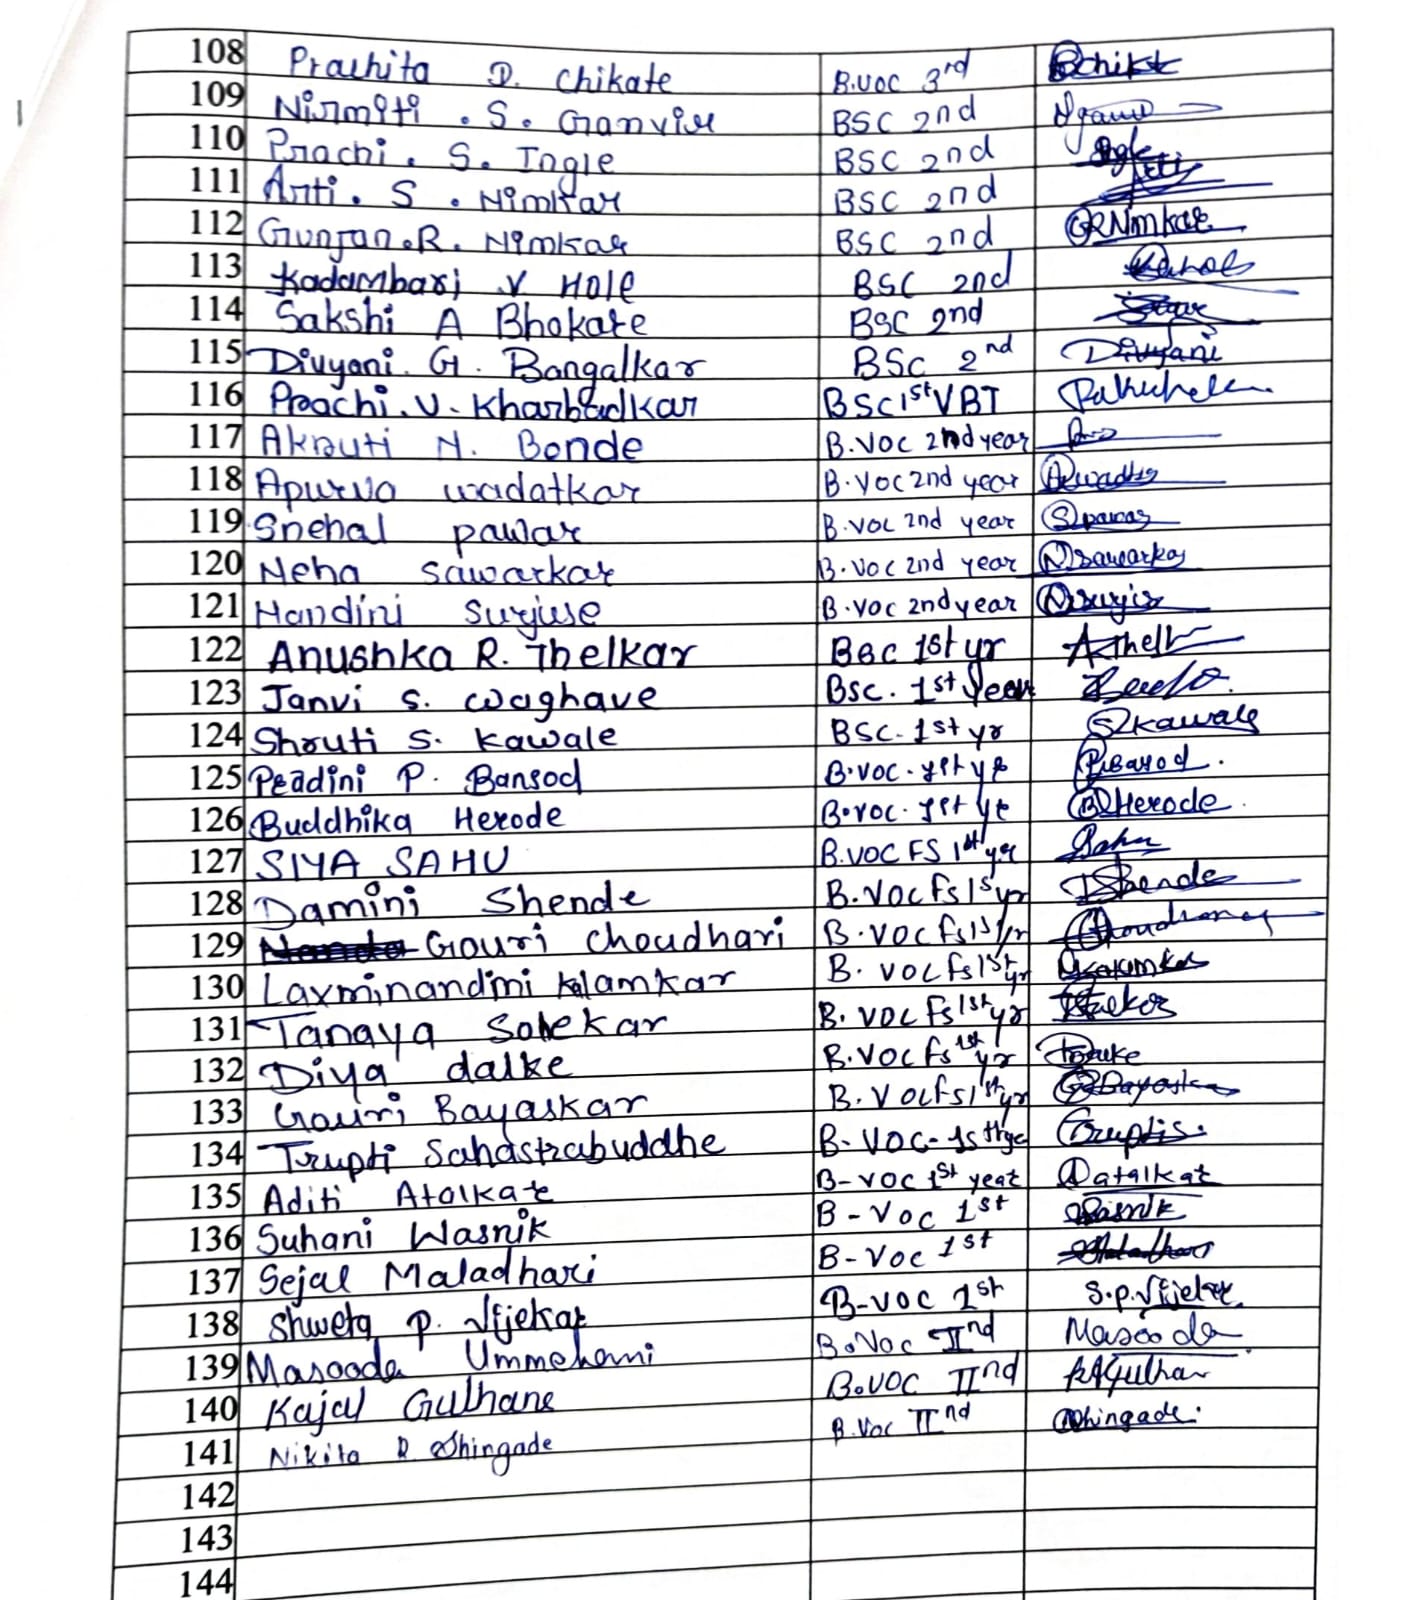 108 Prachita D. Chikate B.voc 3rd
109 Nirmiti . S. Ganvir BSC 2nd
110 Prachi . S. Ingle BSC 2nd
111 Arti . S . Nimkar BSC 2nd
112 Gunjan . R. Nimkar BSC 2nd GRNimkar
113 Kadambari V Hole BSC 2nd
114 Sakshi A Bhokare BSC 2nd
115 Divyani. G. Bangalkar BSc 2nd Divyani
116 Prachi . V. Kharbadkar BSc 1st VBT
117 Akruti N. Bonde B.VOC 2nd year
118 Apurva wadatkar B.VOC 2nd year
119 Snehal pawar B.VOC 2nd year Spawar
120 Neha Sawarkar B.VOC 2nd year NSawarkar
121 Nandini Surjuse B.VOC 2nd year
122 Anushka R. Thelkar BSC 1st yr
123 Janvi S. Waghave Bsc. 1st Year
124 Shruti S. Kawale BSC. 1st yr Skawale
125 Peadini P. Bansod B.voc. 1st yr PBansod.
126 Buddhika Herode B.voc. 1st yr BHerode.
127 SIYA SAHU B.VOC FS 1st yr Sahu
128 Damini Shende B.VOC Fs 1st yr DShende
129 Gouri Choudhari B.VOC Fs 1st yr
130 Laxminandini Kalamkar B. VOC Fs 1st yr
131 Tanaya Solekar B. VOC Fs 1st yr
132 Diya dalke B.VOC Fs 1st yr
133 Gauri Bayaskar B. VOC Fs 1st yr GBayaskar
134 Trupti Sahastrabuddhe B-VOC-1st yr Truptis.
135 Aditi Atalkar B-VOC 1st year Aatalkar
136 Suhani Wasnik B-VOC 1st Wasnik
137 Sejal Maladhari B-VOC 1st
138 Shweta P. Vijekar B-VOC 1st S.P.Vijekar
139 Masooda Ummehani B.Voc IInd Masooda
140 Kajal Gulhane B.VOC IInd KAGulhan
141 Nikita R Dhingade B.Voc IInd Dhingade.
142
143
144